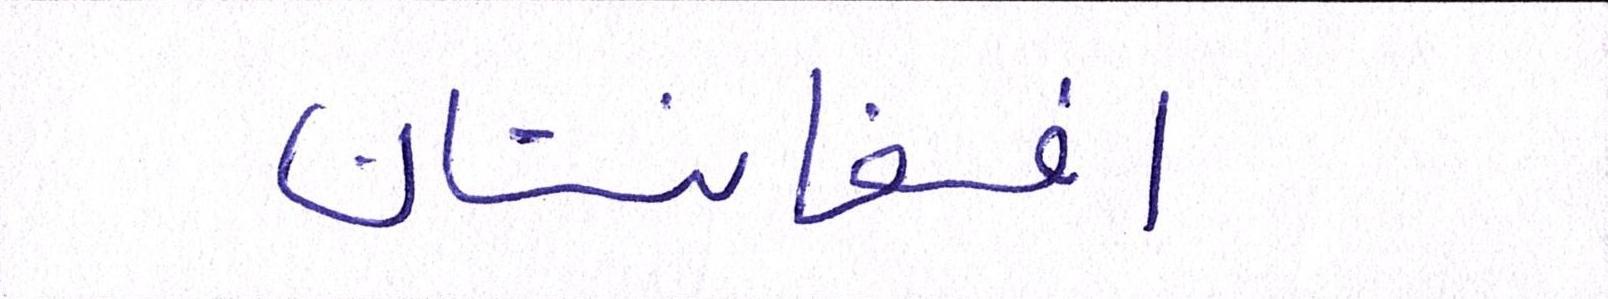 افغانستان